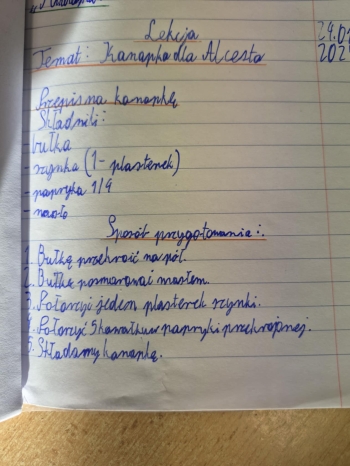 Lekcja 29.0
Temat: Kanapka dla Alcesta 202
Przepis na kanapkę
Składniki:
bułka
- szynka (1 - plasterek)
- papryka 1/4
- masło
Sposób przygotowania:
1. Bułkę przekroić na pół.
2. Bułkę posmarować masłem.
3. Położyć jeden plasterek szynki.
4. Położyć 5 kawałków papryki przekrojonej.
5. Składamy kanapkę.